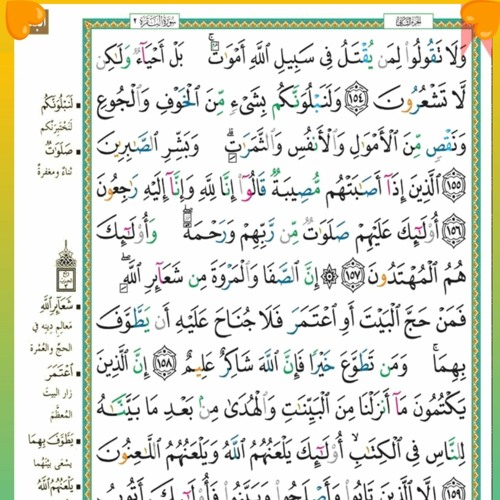 سُورَةُ الْبَقَرَةِ ٢
وَلَا تَقُولُوا۟ لِمَن يُقْتَلُ فِى سَبِيلِ ٱللَّهِ أَمْوَٰتٌۢ ۚ بَلْ أَحْيَآءٌ وَلَـٰكِن
لَّا تَشْعُرُونَ ١٥٤ وَلَنَبْلُوَنَّكُم بِشَىْءٍ مِّنَ ٱلْخَوْفِ وَٱلْجُوعِ
وَنَقْصٍ مِّنَ ٱلْأَمْوَٰلِ وَٱلْأَنفُسِ وَٱلثَّمَرَٰتِ ۗ وَبَشِّرِ ٱلصَّـٰبِرِينَ
١٥٥ ٱلَّذِينَ إِذَآ أَصَـٰبَتْهُم مُّصِيبَةٌ قَالُوٓا۟ إِنَّا لِلَّهِ وَإِنَّآ إِلَيْهِ رَٰجِعُونَ
١٥٦ أُو۟لَـٰٓئِكَ عَلَيْهِمْ صَلَوَٰتٌ مِّن رَّبِّهِمْ وَرَحْمَةٌ ۖ وَأُو۟لَـٰٓئِكَ
هُمُ ٱلْمُهْتَدُونَ ١٥٧ ۞ إِنَّ ٱلصَّفَا وَٱلْمَرْوَةَ مِن شَعَآئِرِ ٱللَّهِ ۖ
فَمَنْ حَجَّ ٱلْبَيْتَ أَوِ ٱعْتَمَرَ فَلَا جُنَاحَ عَلَيْهِ أَن يَطَّوَّفَ
بِهِمَا ۚ وَمَن تَطَوَّعَ خَيْرًا فَإِنَّ ٱللَّهَ شَاكِرٌ عَلِيمٌ ١٥٨ إِنَّ ٱلَّذِينَ
يَكْتُمُونَ مَآ أَنزَلْنَا مِنَ ٱلْبَيِّنَـٰتِ وَٱلْهُدَىٰ مِنۢ بَعْدِ مَا بَيَّنَّـٰهُ
لِلنَّاسِ فِى ٱلْكِتَـٰبِ ۙ أُو۟لَـٰٓئِكَ يَلْعَنُهُمُ ٱللَّهُ وَيَلْعَنُهُمُ ٱللَّـٰعِنُونَ
١٥٩ إِلَّا ٱلَّذِينَ تَابُوا۟ وَأَصْلَحُوا۟ وَبَيَّنُوا۟ فَأُو۟لَـٰٓئِكَ أَتُوبُ
لَنَبْلُوَنَّكُمْ
لَنَخْتَبِرَنَّكُم
صَلَوَاتٌ
ثناءٌ ومغفرةٌ
شَعَآئِرِ اللَّهِ
معالمِ دينِه في
الحجِّ والعُمْرة
اعْتَمَرَ
زار البيتَ
المُعظَّمَ
يَطَّوَّفَ بِهِمَا
يسْعَى بيْنَهُما
يَلْعَنُهُمُ اللَّهُ